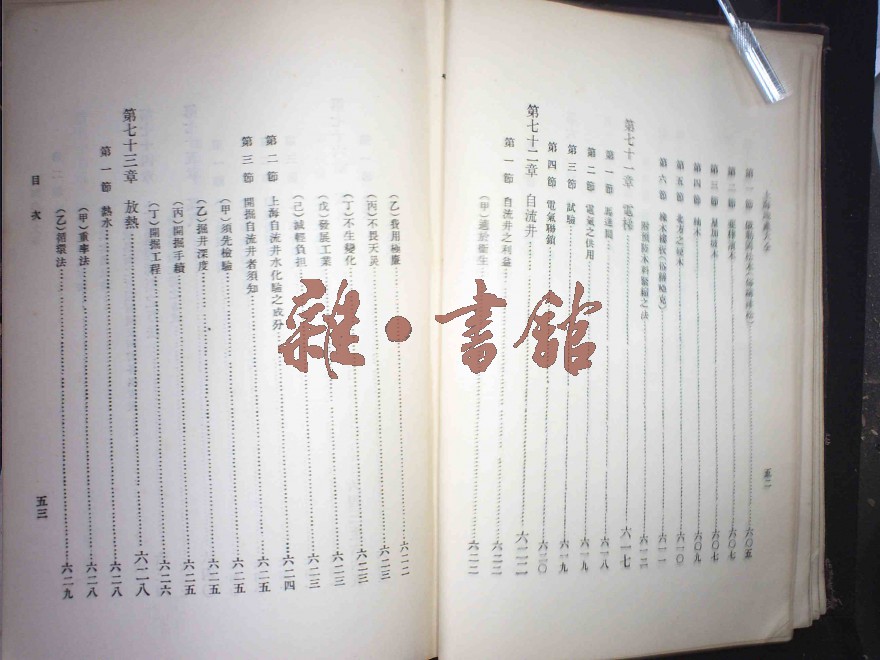 上海地產大全
五二
第二節
第三節
第四節 柚木 六〇九
第五節 北方之硬木 六一〇
第六節 六一一
六一二
第七十一章 電梯 六一七
第一節 馬達間 六一八
第二節 電氣之供用 六一九
第三節 試驗 六一九
第四節 電氣聯鎖 六二〇
第七十二章 自流井 六二二
第一節 自流井之利益 六二二
(甲)適於衞生 六二二
(乙)費用極廉 六二二
(丙)不畏天災 六二三
(丁)不生變化 六二三
(戊)發展工業 六二三
(己)減輕負担 六二三
第二節 上海自流井水化驗之成分 六二四
第三節 開掘自流井者須知 六二五
(甲)須先檢驗 六二五
(乙)掘井深度 六二五
(丙)開掘手續 六二五
(丁)開掘工程 六二六
第七十三章 放熱 六二八
第一節 熱水 六二八
(甲)重率法 六二八
(乙)循環法 六二九
目次
五三
雜·書館